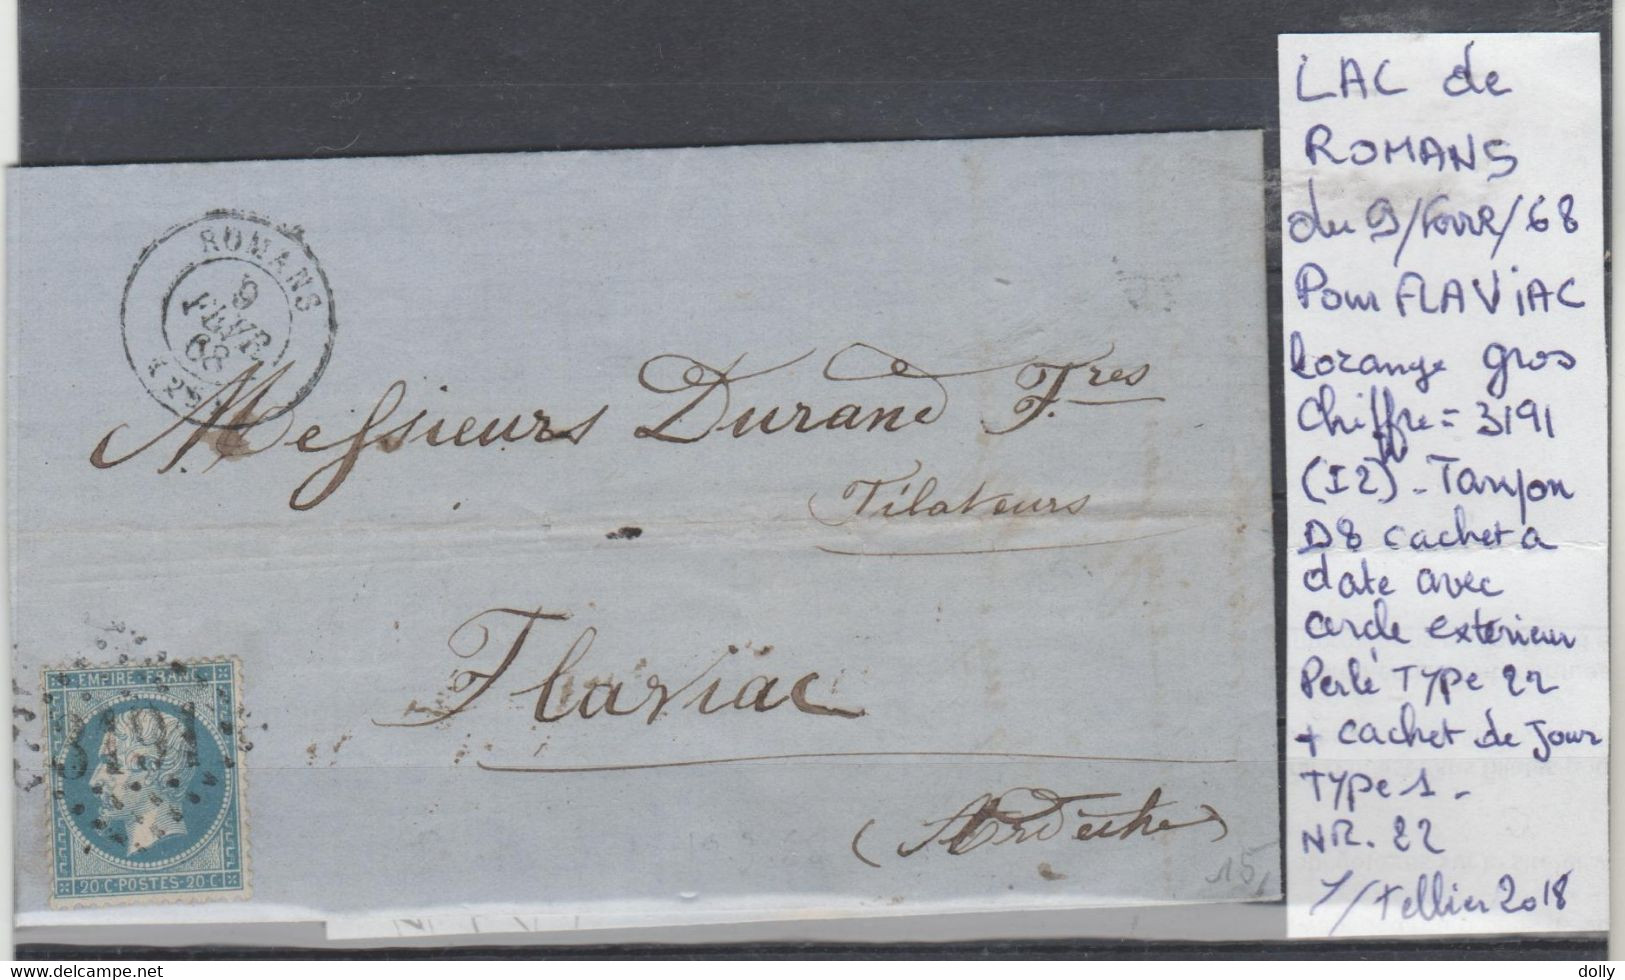 ROMANS
9
FEVR
68
(25)
Messieurs Durand Fres
Filateurs
Flaviac
(Ardèche)
15
EMPIRE FRANC
3191
20 C POSTES 20 C
LAC de
ROMANS
du 9/Fevr/68
Pour FLAViAC
Lozange gros
Chiffre = 3191
(I2) - Tampon
D8 cachet a
date avec
cercle exterieur
Perlé Type 22
+ cachet de Jour
Type 1 -
NR. 22
Y/Tellier 2018
https://www.delcampe.net
dolly